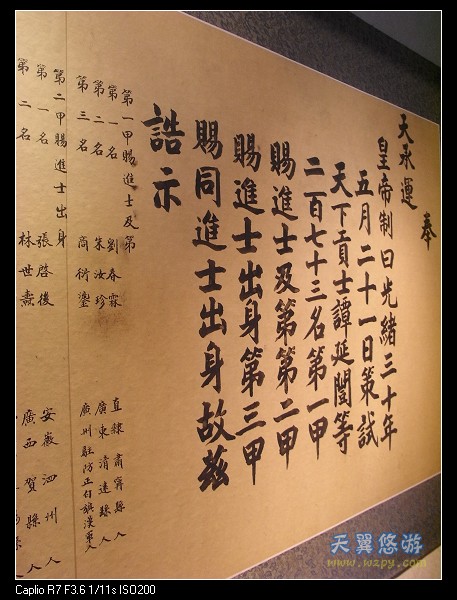 奉
天承運
皇帝制曰光緒三十年
五月二十一日策試
天下貢士譚延闓等
二百七十三名第一甲
賜進士及第第二甲
賜進士出身第三甲
賜同進士出身故茲
誥示
第一甲賜進士及第
第一名 劉春霖 直隸肅寧縣人
第二名 朱汝珍 廣東清遠縣人
第三名 商衍鎏 廣州駐防正白旗漢軍人
第二甲賜進士出身
第一名 張啓後 安徽泗州人
第二名 林世燾 廣西賀縣人
天翼悠游
www.wzpy.com
Caplio R7 F3.6 1/11s ISO200